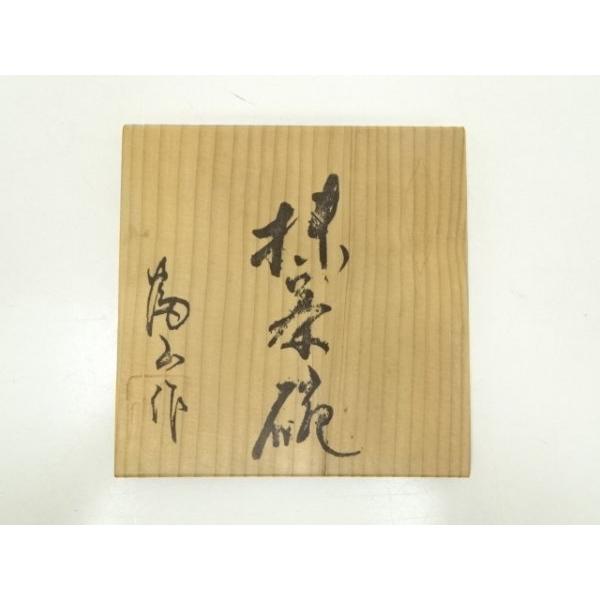 抹茶碗
陶山作